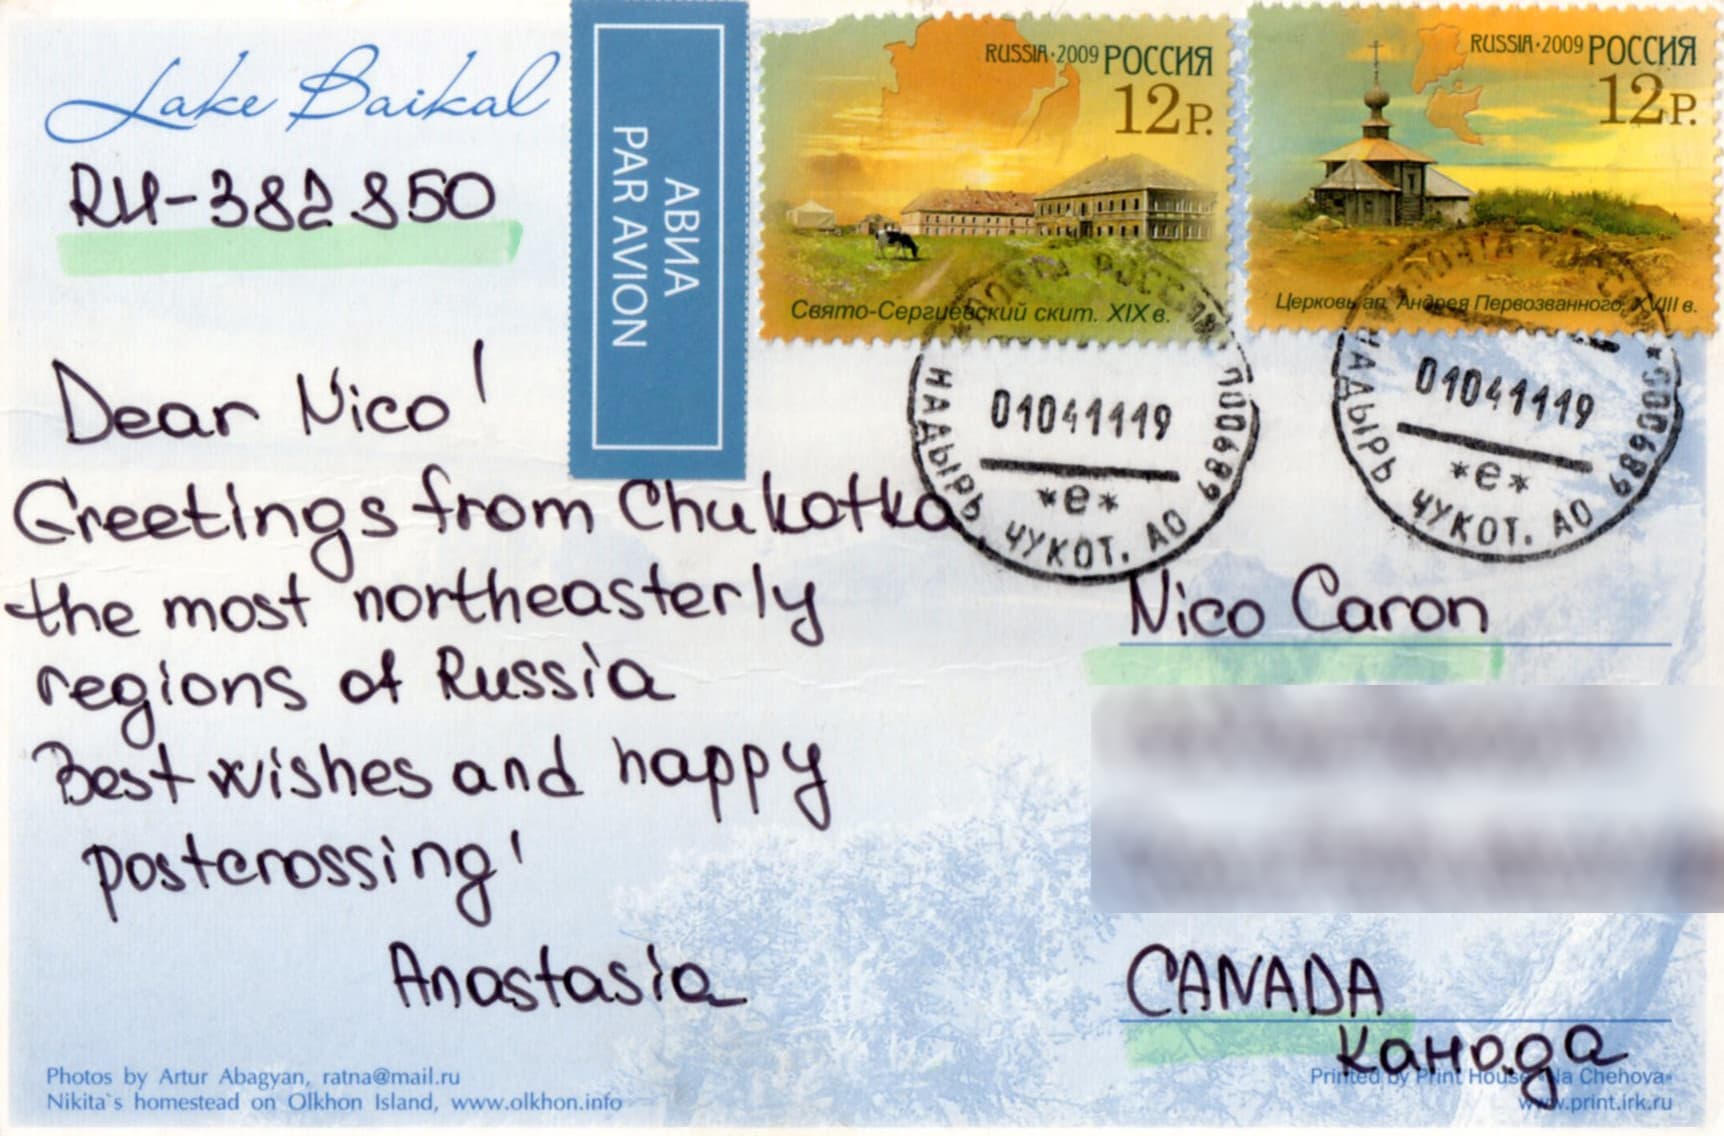 Lake Baikal
RU-382850
АВИА
PAR AVION
RUSSIA·2009 РОССИЯ
12Р.
Свято-Сергиевский скит. XIX в.
RUSSIA·2009 РОССИЯ
12Р.
Церковь ап. Андрея Первозванного, XVIII в.
*ПОЧТА РОССИИ*
АНАДЫРЬ ЧУКОТ. АО 689
01041119
*е*
*ПОЧТА РОССИИ*
АНАДЫРЬ ЧУКОТ. АО 689
01041119
*е*
Dear Nico!
Greetings from Chukotka
the most northeasterly
regions of Russia
Best wishes and happy
postcrossing!
Anastasia
Nico Caron
CANADA
Канада
Photos by Artur Abagyan, ratna@mail.ru
Nikita`s homestead on Olkhon Island, www.olkhon.info
Printed by Print House «Na Chehova»
www.print.irk.ru